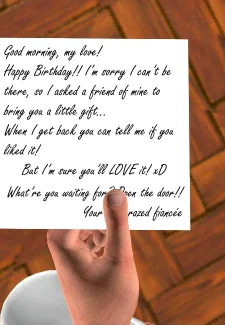 Good morning, my love!
Happy Birthday!! I'm sorry I can't be
there, so I asked a friend of mine to
bring you a little gift...
When I get back you can tell me if you
liked it!
But I'm sure you'll LOVE it! xD
What're you waiting for? Open the door!!
Your razed fiancée